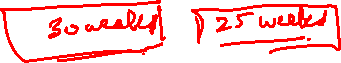 30 weeks 25 weeks